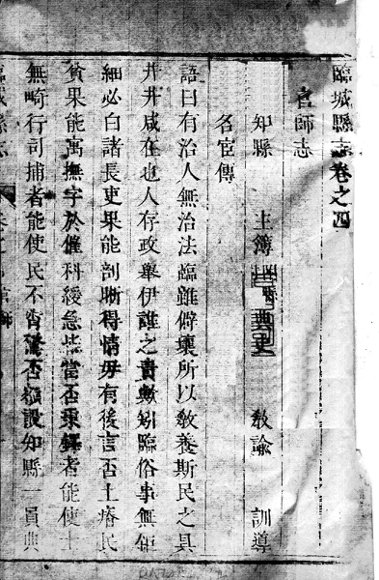 臨城縣志卷之四
官師志
知縣 主簿 典史 敎諭 訓導
名宦傳
語曰有治人無治法臨雖僻壤所以敎養斯民之具
井井咸在也人存政舉伊誰之責歟矧臨俗事無鉅
細必白諸長吏果能剖晰得情毋有後言否土瘠民
貧果能寓撫字於催科緩急皆當否秉鐸者能使士
無崎行司捕者能使民不 否 設知縣一員典
臨城縣志